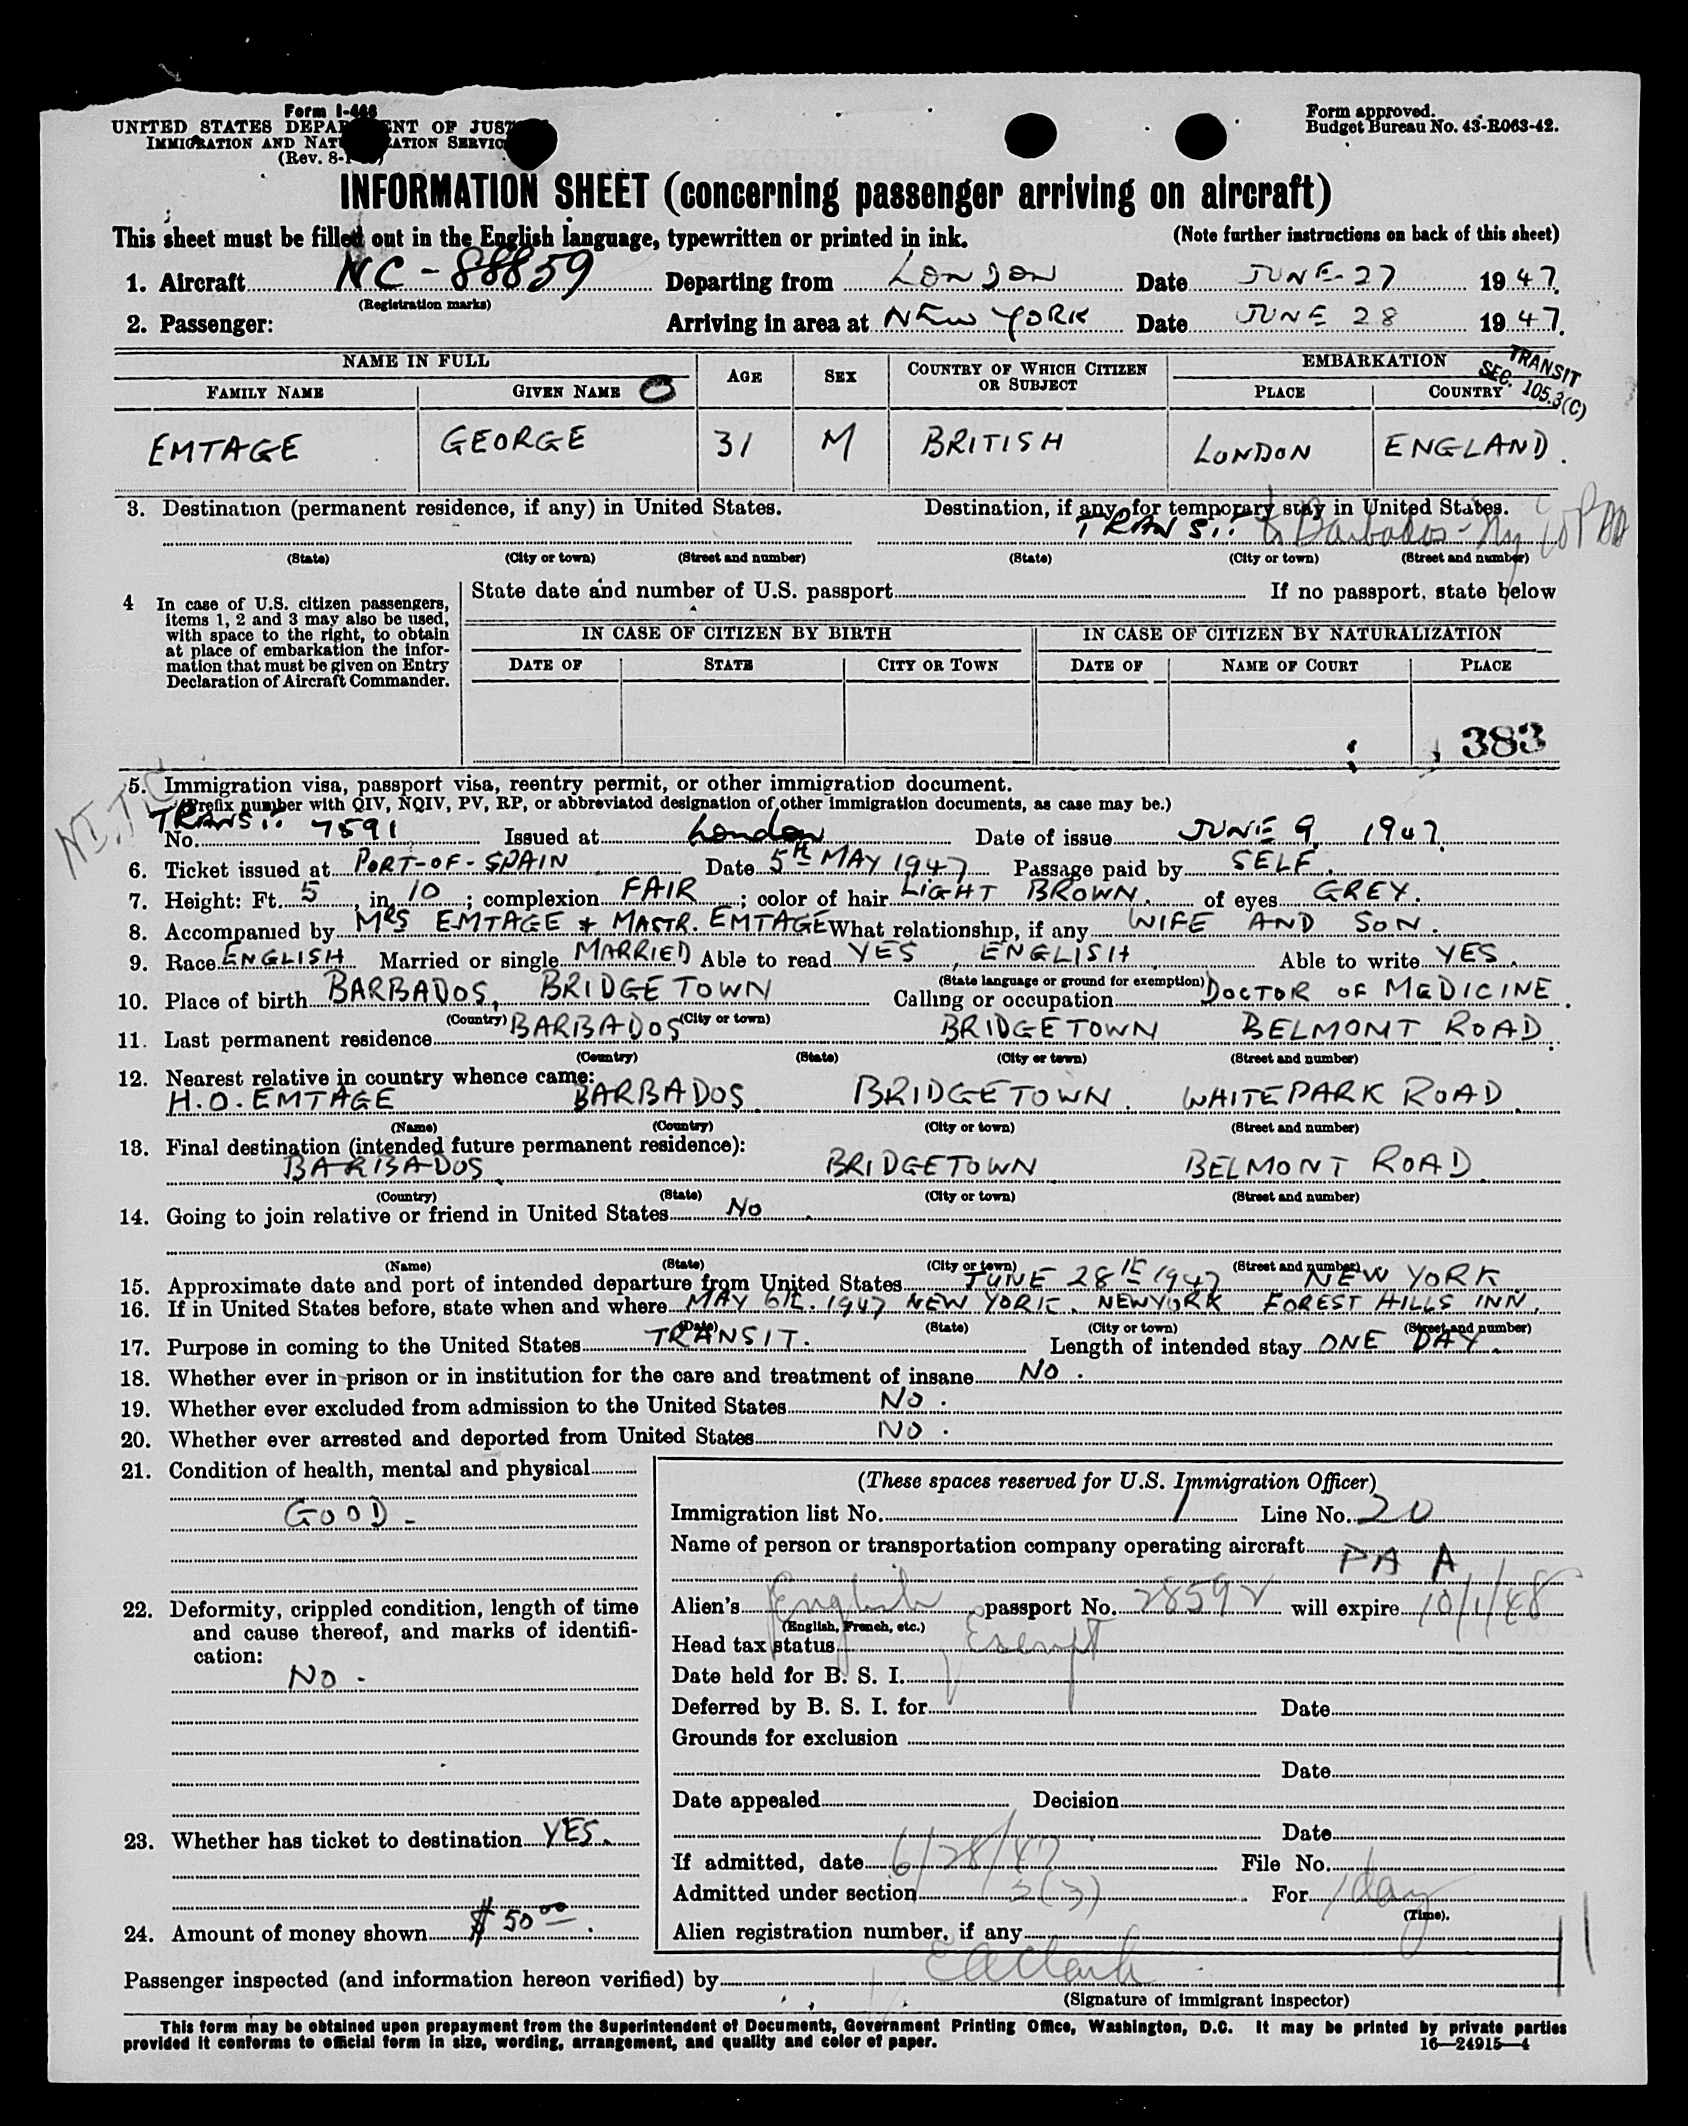 Form I-466
UNITED STATES DEPARTMENT OF JUSTICE
IMMIGRATION AND NATURALIZATION SERVICE
(Rev. 8-1- )
Form approved.
Budget Bureau No. 43-R063-42.
INFORMATION SHEET (concerning passenger arriving on aircraft)
This sheet must be filled out in the English language, typewritten or printed in ink. (Note further instructions on back of this sheet)
1. Aircraft NC-88859 Departing from LONDON Date JUNE-27 1947.
(Registration marks)
2. Passenger: Arriving in area at NEW YORK Date JUNE 28 1947.
NAME IN FULL AGE SEX COUNTRY OF WHICH CITIZEN OR SUBJECT EMBARKATION
TRANSIT SEC. 105.3(C)
FAMILY NAME GIVEN NAME O PLACE COUNTRY
EMTAGE GEORGE 31 M BRITISH LONDON ENGLAND.
3. Destination (permanent residence, if any) in United States. Destination, if any, for temporary stay in United States.
TRANSIT to Barbados - Ny
(State) (City or town) (Street and number) (State) (City or town) (Street and number)
4 In case of U.S. citizen passengers, items 1, 2 and 3 may also be used, with space to the right, to obtain at place of embarkation the information that must be given on Entry Declaration of Aircraft Commander.
State date and number of U.S. passport If no passport, state below
IN CASE OF CITIZEN BY BIRTH IN CASE OF CITIZEN BY NATURALIZATION
DATE OF STATE CITY OR TOWN DATE OF NAME OF COURT PLACE
383
5. Immigration visa, passport visa, reentry permit, or other immigration document.
(Prefix number with QIV, NQIV, PV, RP, or abbreviated designation of other immigration documents, as case may be.)
No. TRANSIT 7591 Issued at London Date of issue JUNE 9, 1947.
6. Ticket issued at PORT-OF-SPAIN Date 5th MAY 1947 Passage paid by SELF.
7. Height: Ft. 5, in. 10; complexion FAIR; color of hair LIGHT BROWN. of eyes GREY.
8. Accompanied by MRS EMTAGE & MASTR. EMTAGE What relationship, if any WIFE AND SON.
9. Race ENGLISH Married or single MARRIED Able to read YES, ENGLISH Able to write YES.
(State language or ground for exemption)
10. Place of birth BARBADOS, BRIDGETOWN Calling or occupation DOCTOR OF MEDICINE.
(Country) (City or town)
11. Last permanent residence BARBADOS BRIDGETOWN BELMONT ROAD.
(Country) (State) (City or town) (Street and number)
12. Nearest relative in country whence came:
H.O. EMTAGE BARBADOS BRIDGETOWN. WHITEPARK ROAD.
(Name) (Country) (City or town) (Street and number)
13. Final destination (intended future permanent residence):
BARBADOS BRIDGETOWN BELMONT ROAD
(Country) (State) (City or town) (Street and number)
14. Going to join relative or friend in United States NO
(Name) (State) (City or town) (Street and number)
15. Approximate date and port of intended departure from United States JUNE 28th 1947 NEW YORK
16. If in United States before, state when and where MAY 6th. 1947 NEW YORK. NEWYORK FOREST HILLS INN.
(Date) (State) (City or town) (Street and number)
17. Purpose in coming to the United States TRANSIT. Length of intended stay ONE DAY.
18. Whether ever in prison or in institution for the care and treatment of insane NO.
19. Whether ever excluded from admission to the United States NO.
20. Whether ever arrested and deported from United States NO.
21. Condition of health, mental and physical
GOOD -
22. Deformity, crippled condition, length of time and cause thereof, and marks of identification:
NO -
23. Whether has ticket to destination YES.
24. Amount of money shown $50.00.
(These spaces reserved for U.S. Immigration Officer)
Immigration list No. 1 Line No. 20
Name of person or transportation company operating aircraft PAA
Alien's English passport No. 28592 will expire 10/1/48
(English, French, etc.)
Head tax status Exempt
Date held for B. S. I.
Deferred by B. S. I. for Date
Grounds for exclusion
Date
Date appealed Decision
Date
If admitted, date 6/28/47 File No.
Admitted under section 3(3) For 1 day
(Time).
Alien registration number, if any
Passenger inspected (and information hereon verified) by E A Clark
(Signature of immigrant inspector)
This form may be obtained upon prepayment from the Superintendent of Documents, Government Printing Office, Washington, D.C. It may be printed by private parties
provided it conforms to official form in size, wording, arrangement, and quality and color of paper. 16—24915—4